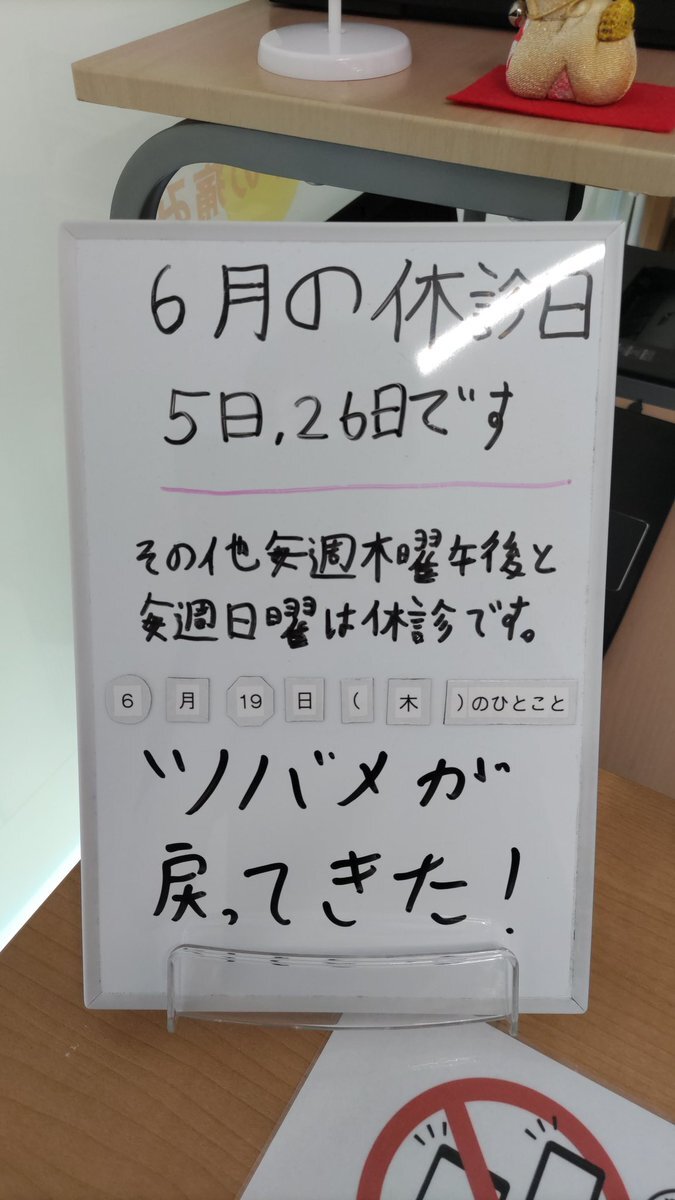 の痛み
6月の休診日
5日,26日です
その他毎週木曜午後と
毎週日曜は休診です。
6月19日(木)のひとこと
ツバメが
戻ってきた!